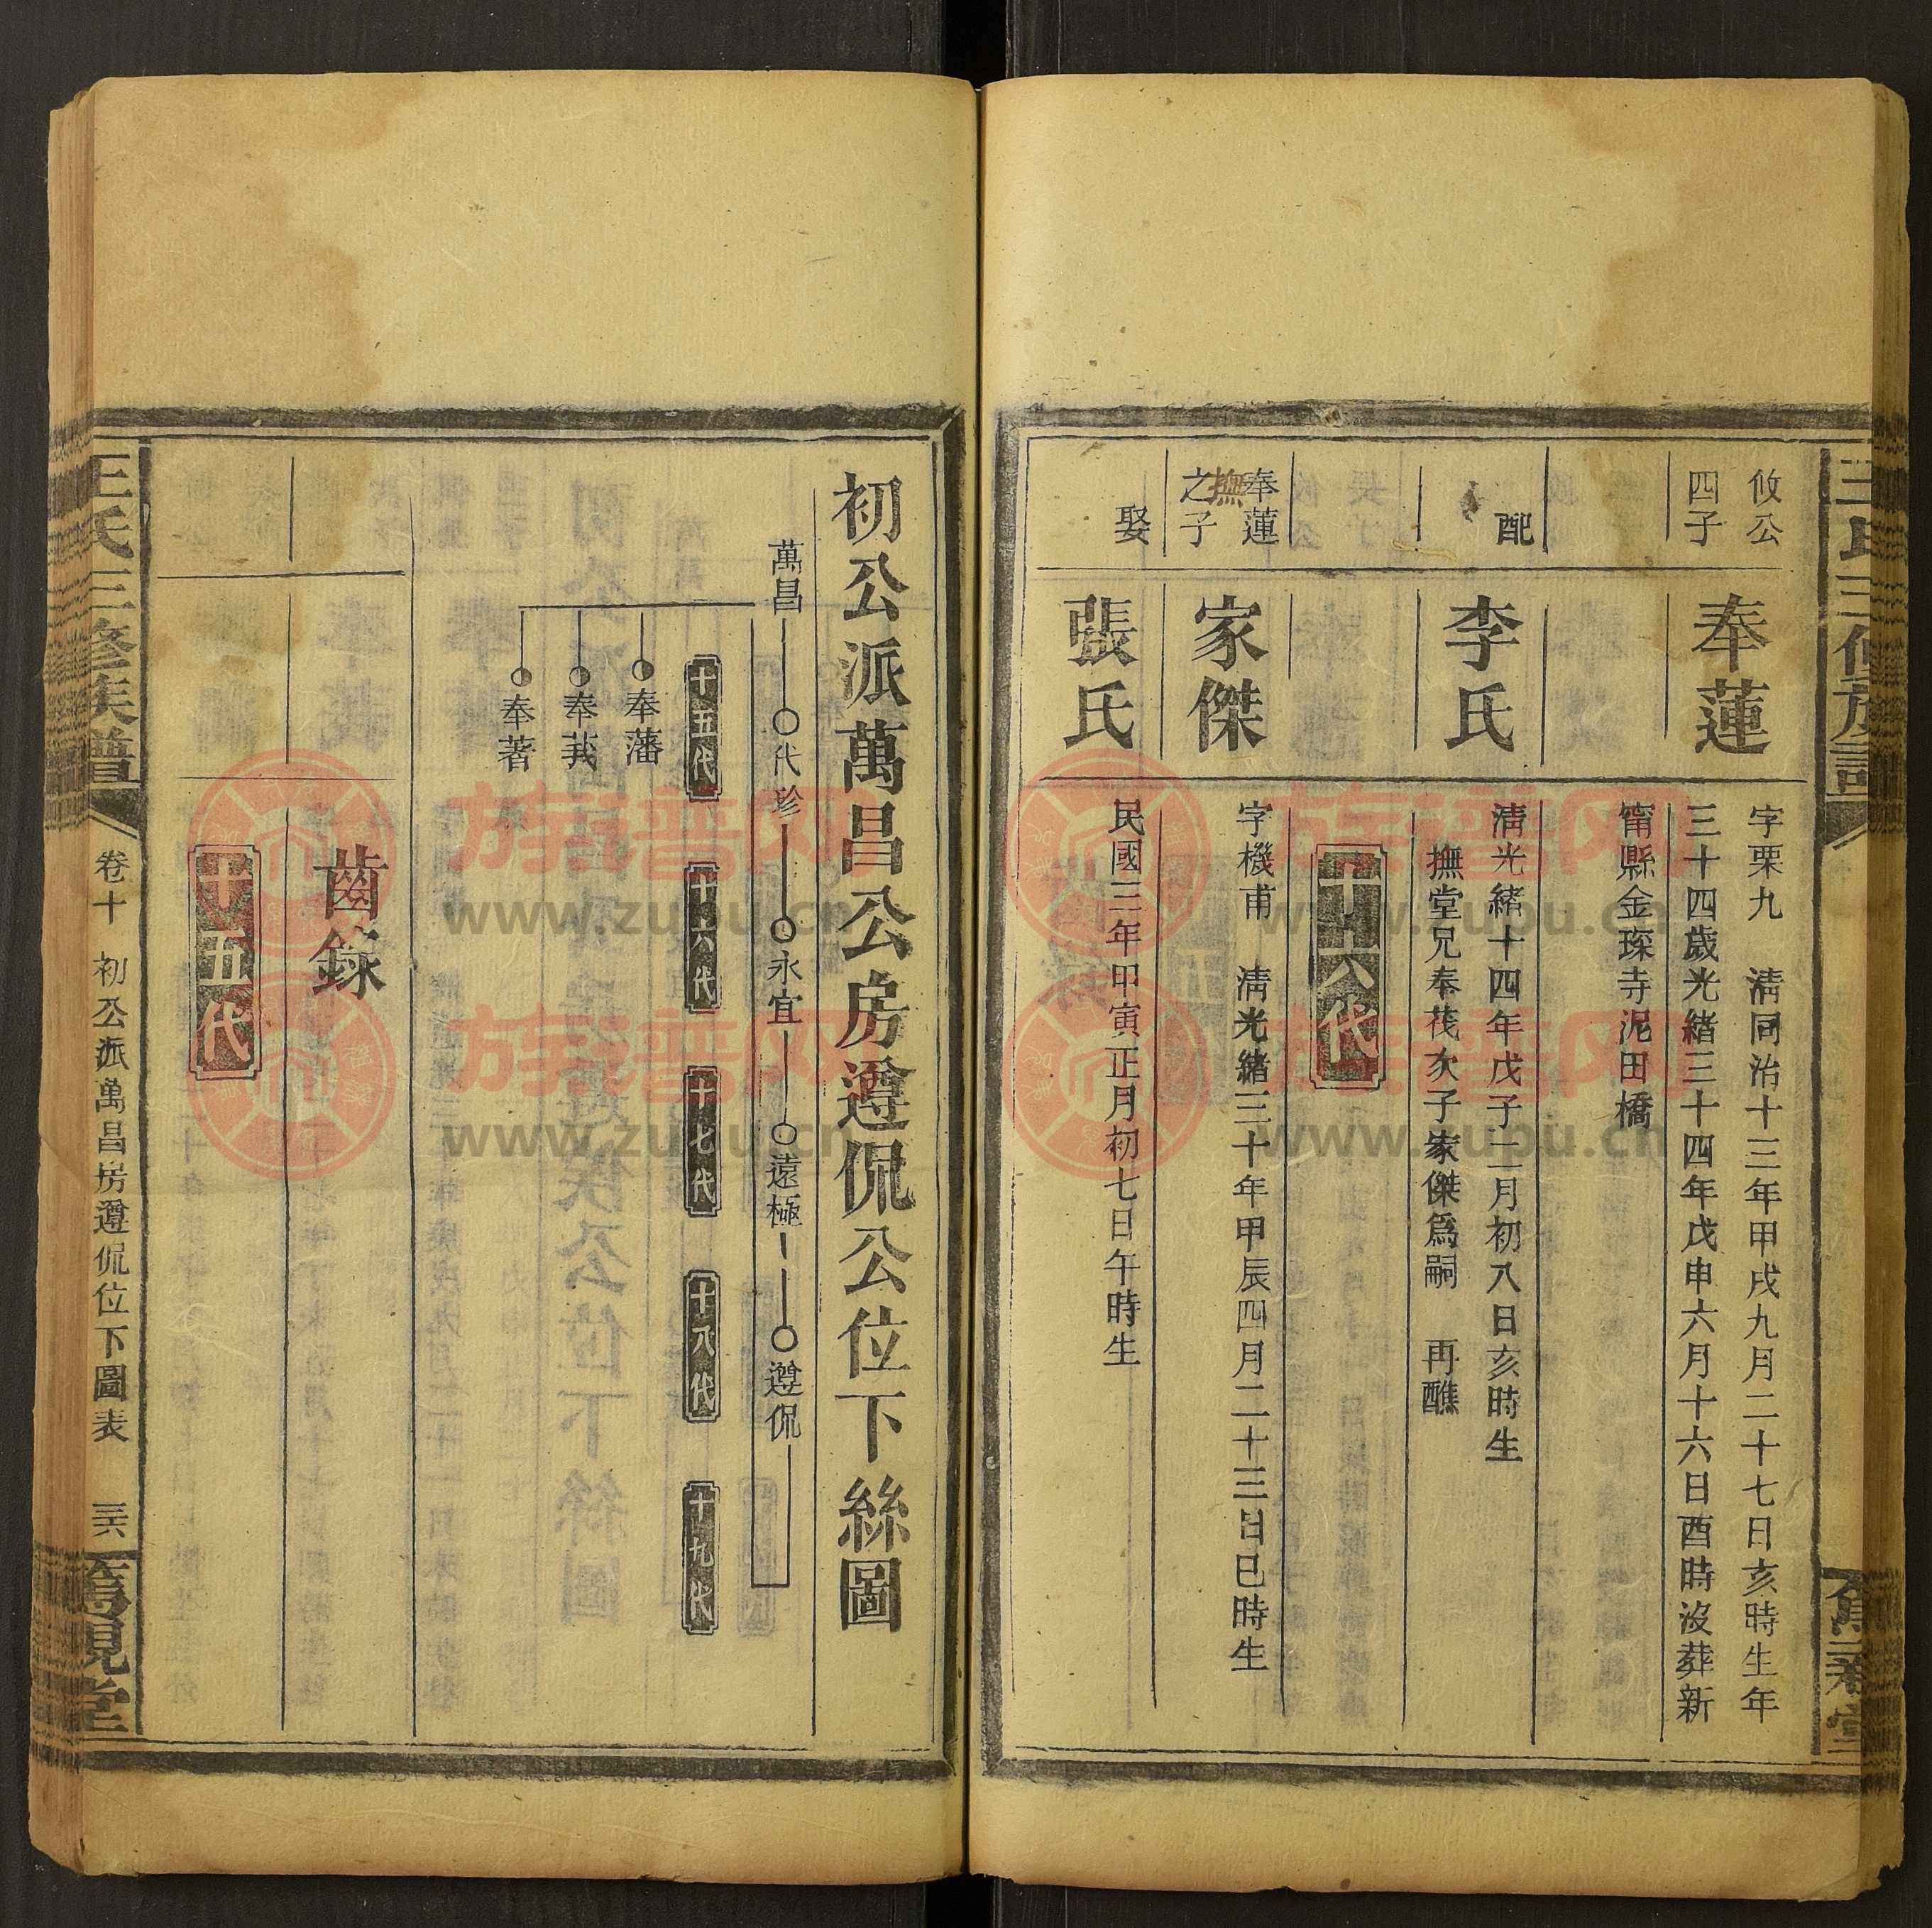 攸公
四子
奉蓮
字栗九　清同治十三年甲戌九月二十七日亥時生年
三十四歲光緒三十四年戊申六月十六日酉時沒葬新
甯縣金琛寺泥田橋
配
李氏
清光緒十四年戊子二月初八日亥時生
撫堂兄奉茷次子家傑爲嗣　再醮
十六代
奉蓮
撫
之子
家傑
字機甫　清光緒三十年甲辰四月二十三日巳時生
娶
張氏
民國三年甲寅正月初七日午時生
初公派萬昌公房遵侃公位下絲圖
萬昌
代珍
永宜
遠極
遵侃
十五代
十六代
十七代
十八代
十九代
奉藩
奉莪
奉著
齒錄
十五代
王氏三修族譜
卷十
初公派萬昌房遵侃位下圖表
三六
族譜网
www.zupu.cn
族譜网
www.zupu.cn
族譜网
www.zupu.cn
族譜网
www.zupu.cn